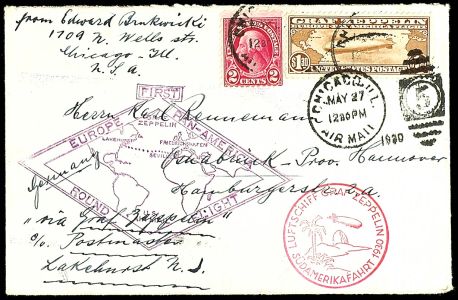 from Edward Bunkwicki
1709 N. Wells str.
Chicago - Ill.
U.S.A.
2 CENTS 2
GRAF ZEPPELIN
$1.30
UNITED STATES POSTAGE
CHICAGO, ILL.
MAY 27
12 30 PM
1930
AIR MAIL
FIRST
EUROPE PAN-AMERICA
ZEPPELIN
LAKEHURST
FRIEDRICHSHAFEN
SEVILLE
ROUND FLIGHT
Herrn Karl Rennemann
Osnabrück - Prov. Hannover
Hamburgerstr.
Germany
"via Graf Zeppelin"
c/o Postmaster
Lakehurst N.J.
LUFTSCHIFF GRAF ZEPPELIN
SÜDAMERIKAFAHRT 1930